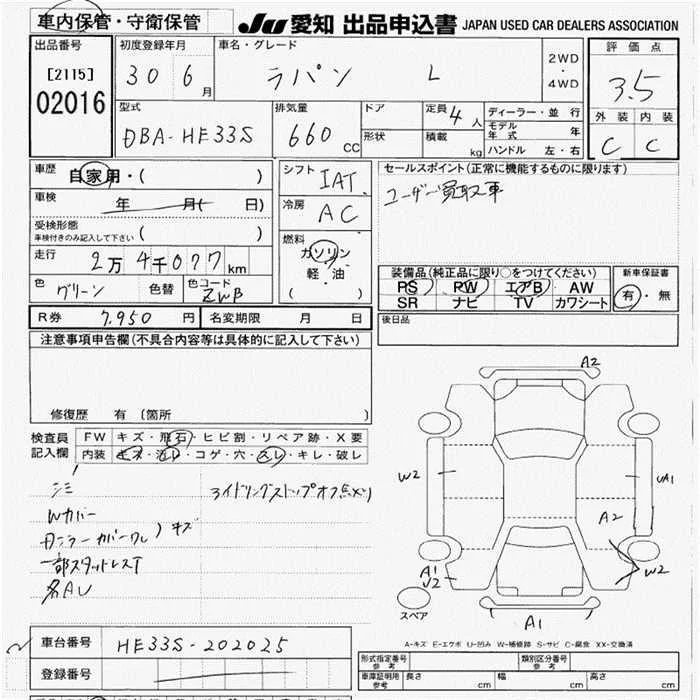 車内保管・守衛保管
JU 愛知 出品申込書 JAPAN USED CAR DEALERS ASSOCIATION
出品番号
[2115]
02016
初度登録年月
30 6月
車名・グレード
ラパン L
2WD・4WD
評価点
3.5
外装 内装
C C
型式
DBA-HE33S
排気量
660 CC
ドア
形状
定員 4人
積載 kg
ディーラー・並行
モデル年式 年
ハンドル 左・右
車歴 自家用・( )
車検 年 月( 日)
受検形態
車検付きのみ記入して下さい ( )
走行 2万4千077km
色 グリーン 色替 色コード ZWB
シフト IAT
冷房 AC
燃料 ガソリン
軽・油
( )
セールスポイント(正常に機能するものに限ります)
ユーザー買取車
装備品(純正品に限り○をつけてください)
PS PW エアB AW
SR ナビ TV カワシート
新車保証書
有・無
後日品
R券 7,950円 名変期限 月 日
注意事項申告欄(不具合内容等は具体的に記入して下さい)
修復歴 有〔箇所 〕
検査員記入欄
FW キズ・飛石・ヒビ割・リペア跡・X要
内装 キズ・汚レ・コゲ・穴・スレ・キレ・破レ
シミ
アイドリングストップオフ点メツ
Wカバー
キズ
一部スタッドレスT
A2
W2
UA1
A2
W2
A1
U2
A1
スペア
A-キズ E-エクボ U-凹み W-補修跡 S-サビ C-腐食 XX-交換済
車台番号 HE33S-202025
登録番号
形式指定番号 参考
類別区分番号 参考
車庫証明用 参考 長さ cm 幅 cm 高さ cm